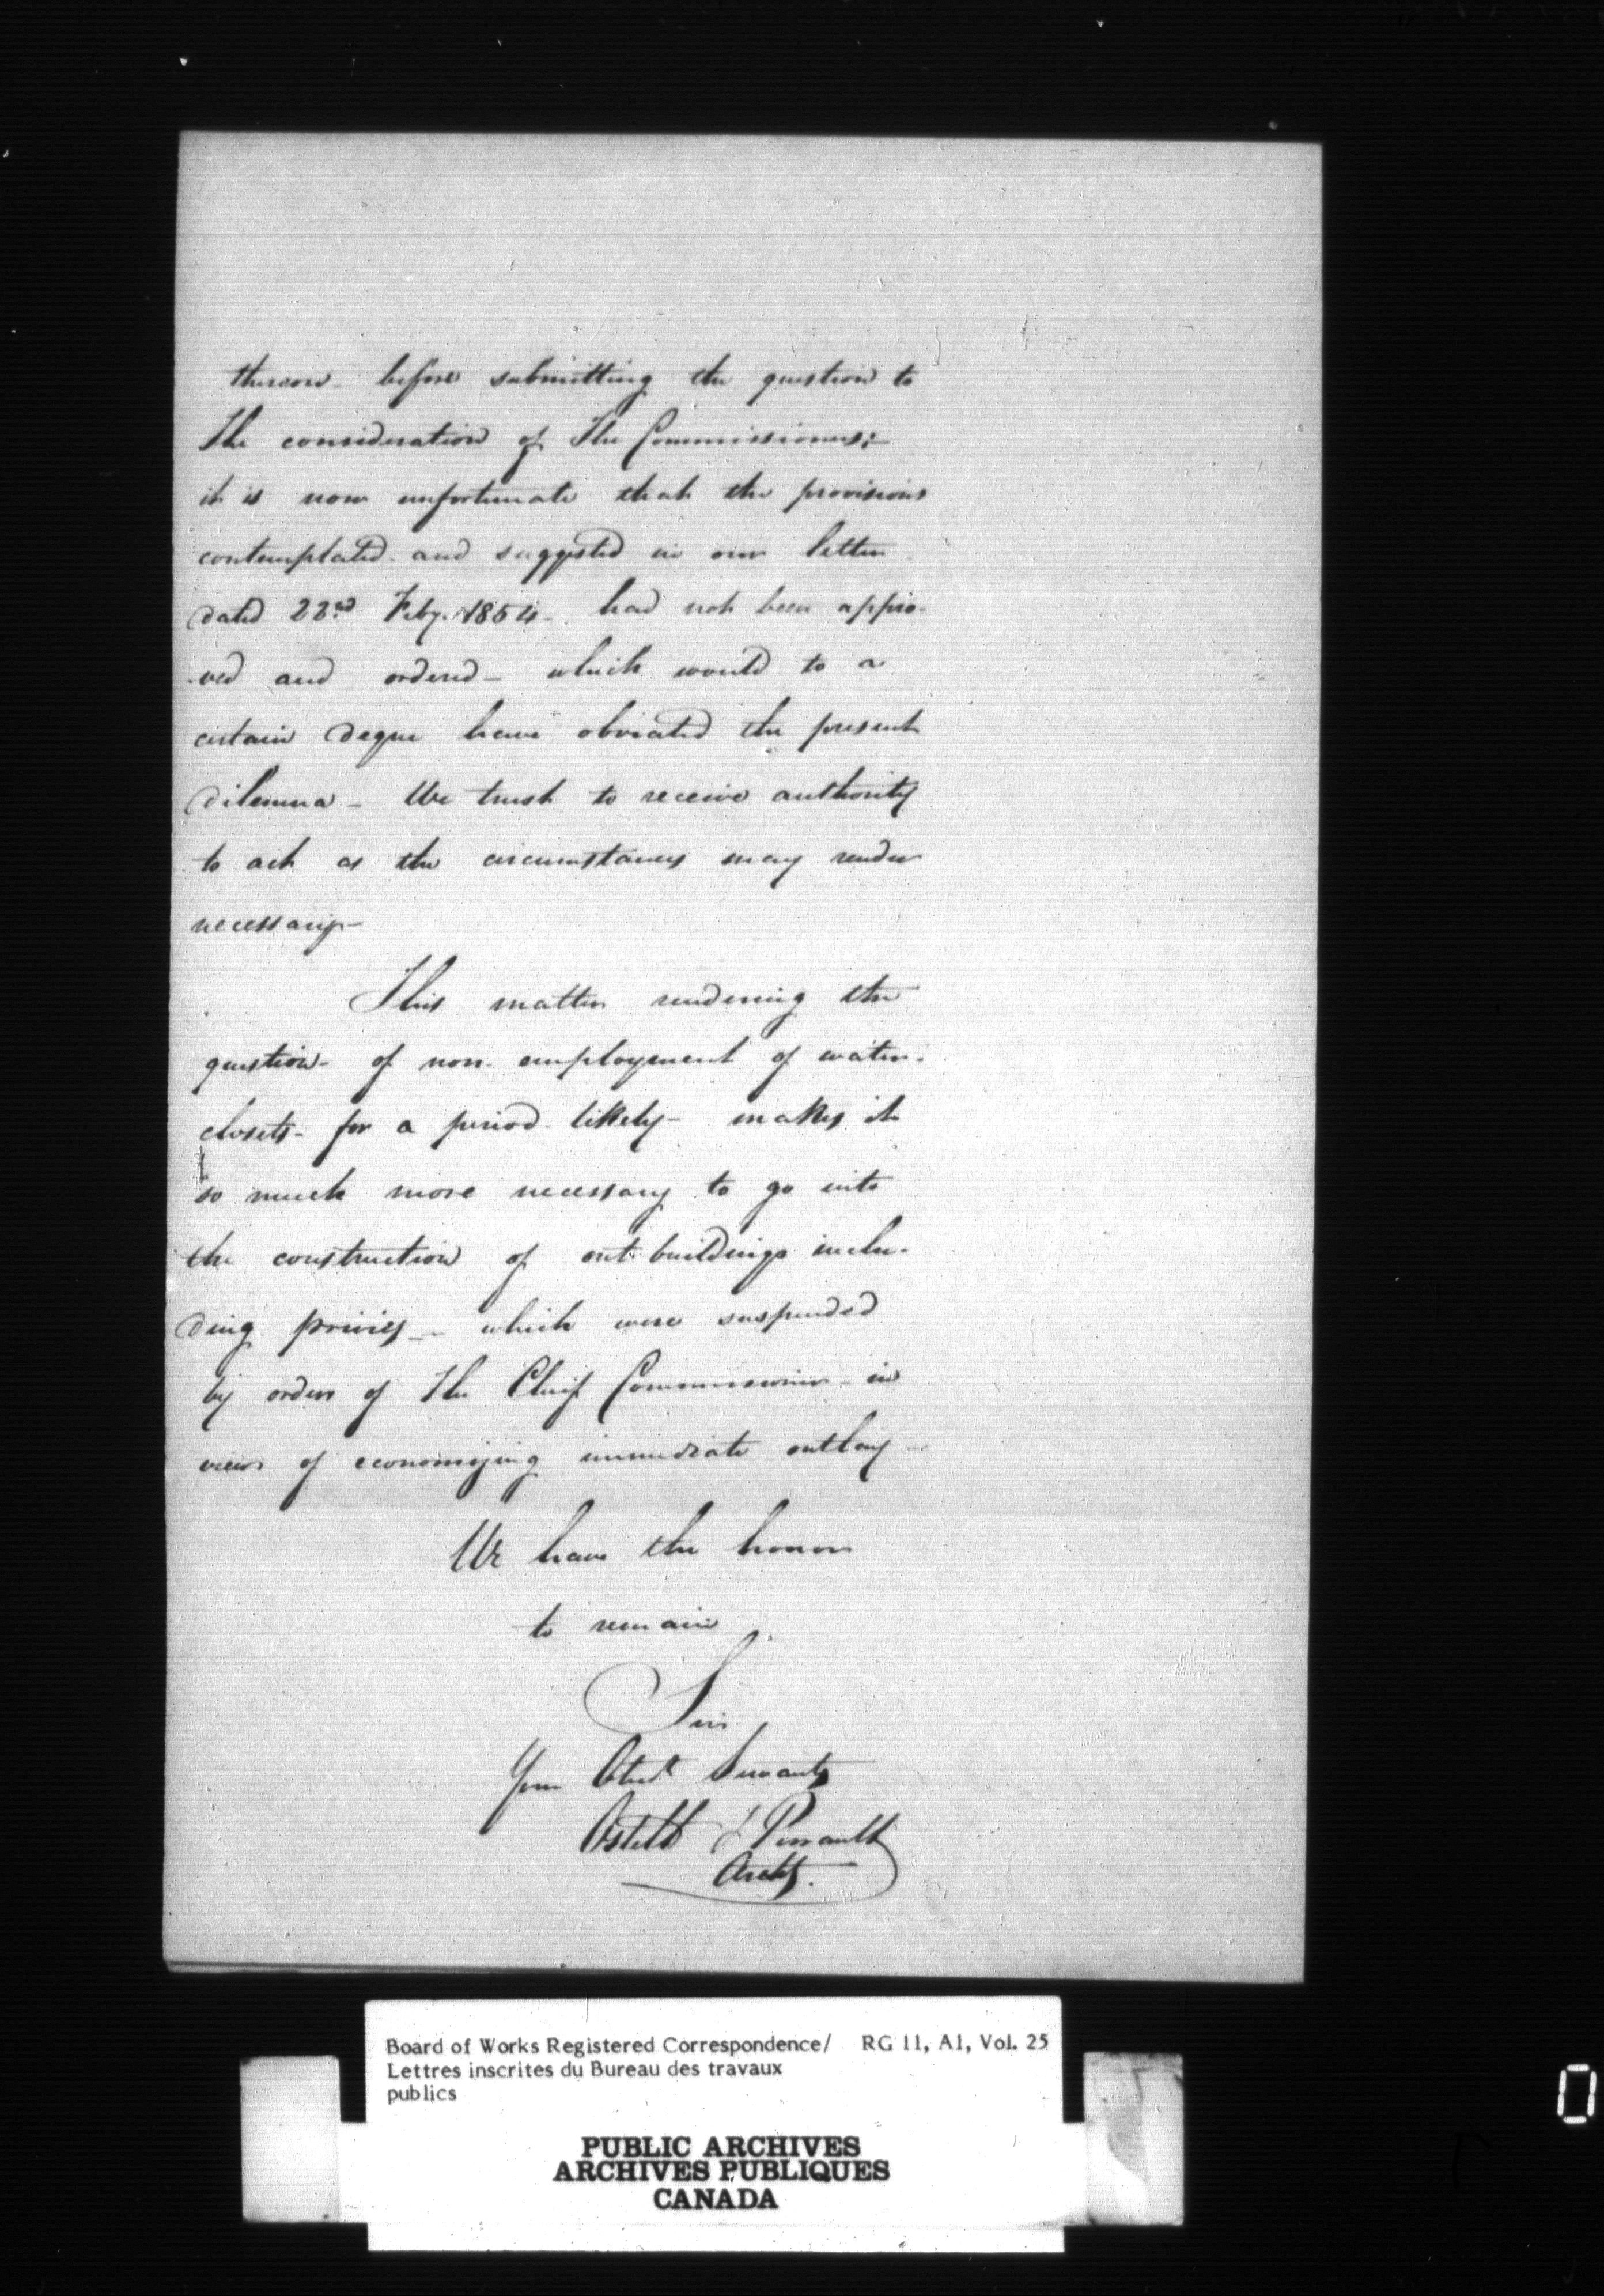 thereon before submitting the question to
The consideration of The Commissioners;—
it is now unfortunate that the provisions
contemplated and suggested in our letter
dated 22nd Feby. 1854 – had not been appro-
-ved and ordered – which would to a
certain degree have obviated the present
dilemma – We trust to receive authority
to act as the circumstances may render
necessary –
This matter rendering the
question – of non-employment of water-
closets – for a period likely – makes it
so much more necessary to go into
the construction of out-buildings inclu-
ding privies – which were suspended
by orders of The Chief Commissioner – in
view of economizing immediate outlay –
We have the honor
to remain
Sir
Your Obedt Servants
Ostell & Perrault
Archts.
Board of Works Registered Correspondence/ RG 11, A1, Vol. 25
Lettres inscrites du Bureau des travaux
publics
PUBLIC ARCHIVES
ARCHIVES PUBLIQUES
CANADA
0